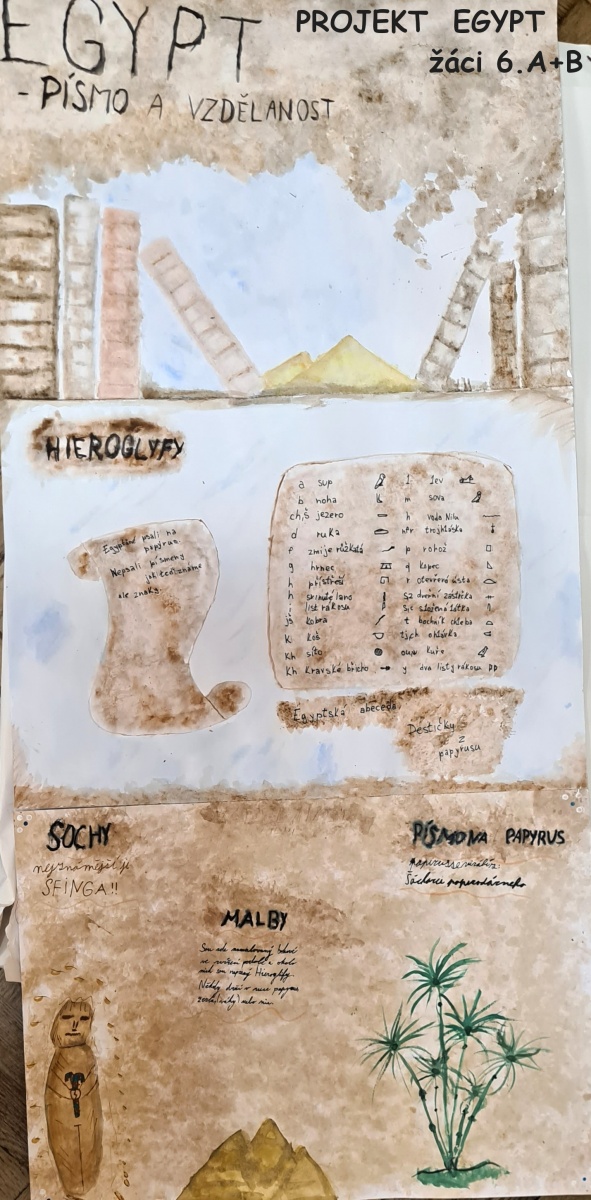 EGYPT
PROJEKT EGYPT
žáci 6.A+B
- PÍSMO A VZDĚLANOST
HIEROGLYFY
Egypťané psali na
papyrus.
Nepsali písmeny
jak teď známe
ale znaky.
a sup
b noha
ch,š jezero
d ruka
f zmije růžkatá
g hrnec
h přístřeší
h
i list rákosu
j kobra
k koš
kh síto
kh kravské břicho
l lev
m sova
n voda Nilu
nfr trojhláska
p rohož
q kopec
r otevřená ústa
dveřní zástrčka
složená látka
t bochník chleba
oprátka
kuře
y dva listy rákosu
Egyptská abeceda
Destičky
z
papyrusu
SOCHY
nejznámější je
SFINGA!!
PÍSMO NA PAPYRUS
MALBY